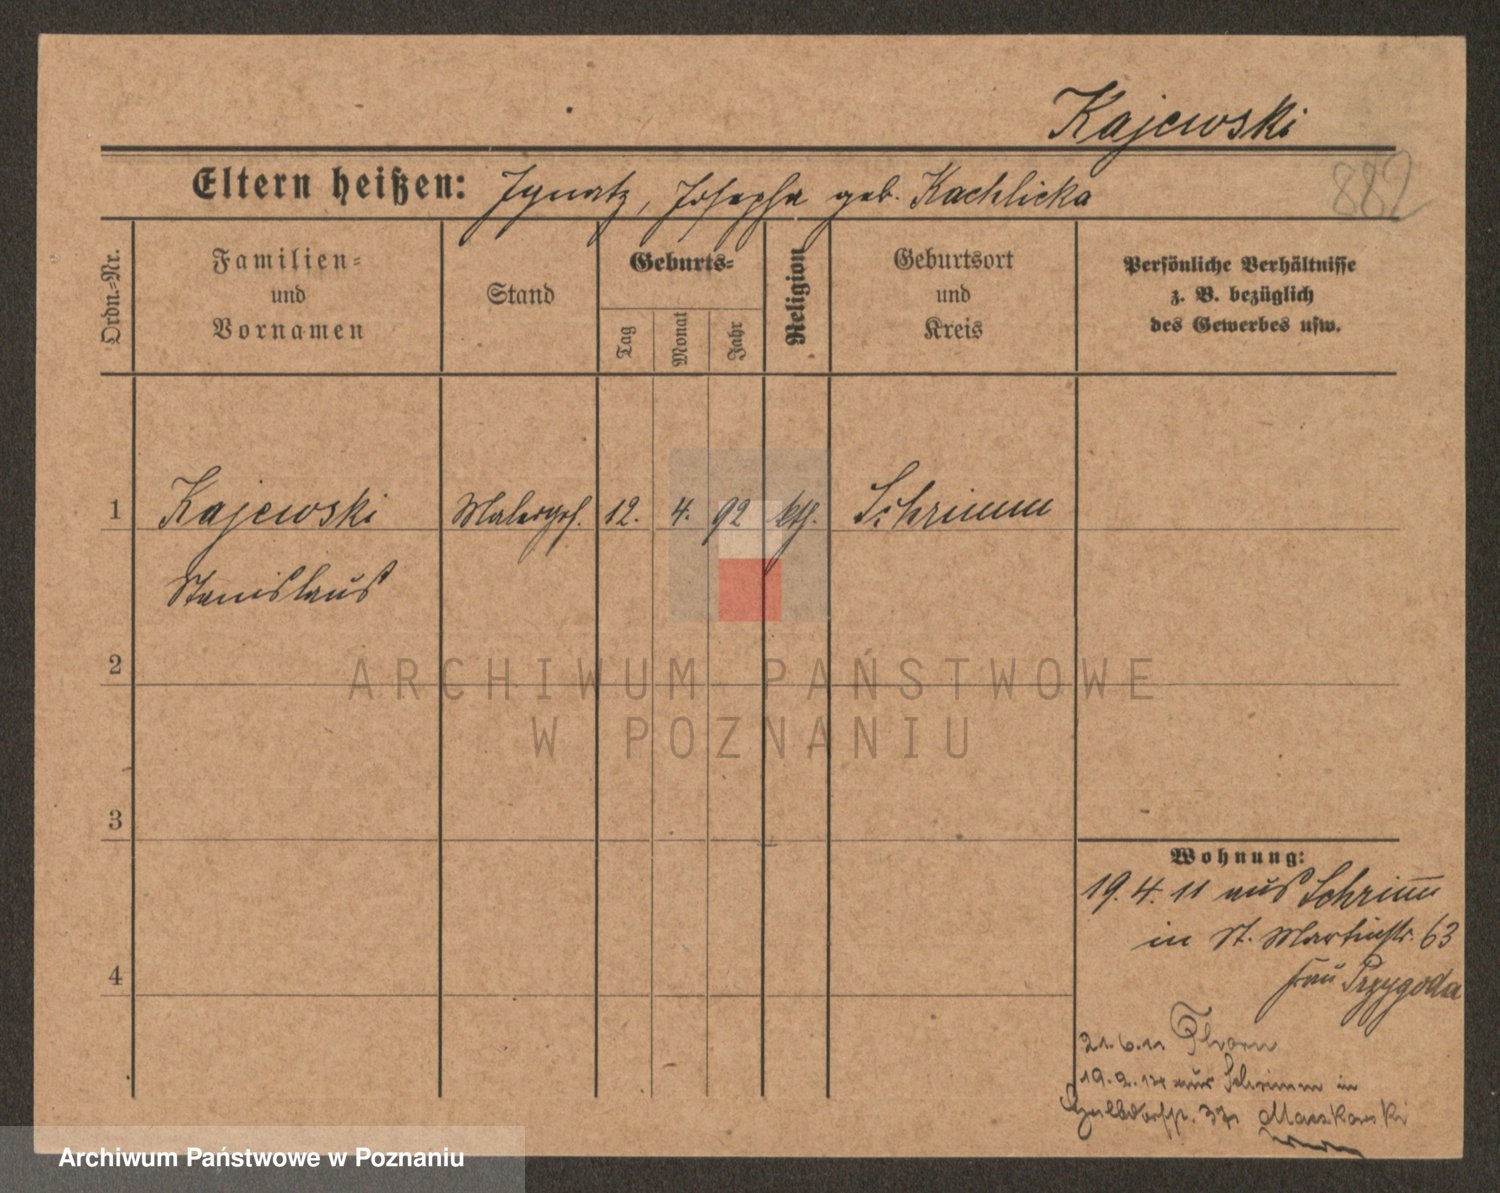 Kajewski
882
Eltern heißen: Ignatz, Josepha geb. Kachlicka
Ordn.-Nr.
Familien-
und
Vornamen
Stand
Geburts-
Tag
Monat
Jahr
Religion
Geburtsort
und
Kreis
Persönliche Verhältnisse
z. B. bezüglich
des Gewerbes usw.
1 Kajewski Malergeh. 12. 4. 92 kth. Schrimm
Stanislaus
2
3
4
Wohnung:
19. 4. 11 aus Schrimm
in St. Martinstr. 63
Frau Przygoda
21.6.11 Thorn
aus Schrimm in
Maczkowski
ARCHIWUM PAŃSTWOWE
W POZNANIU
Archiwum Państwowe w Poznaniu